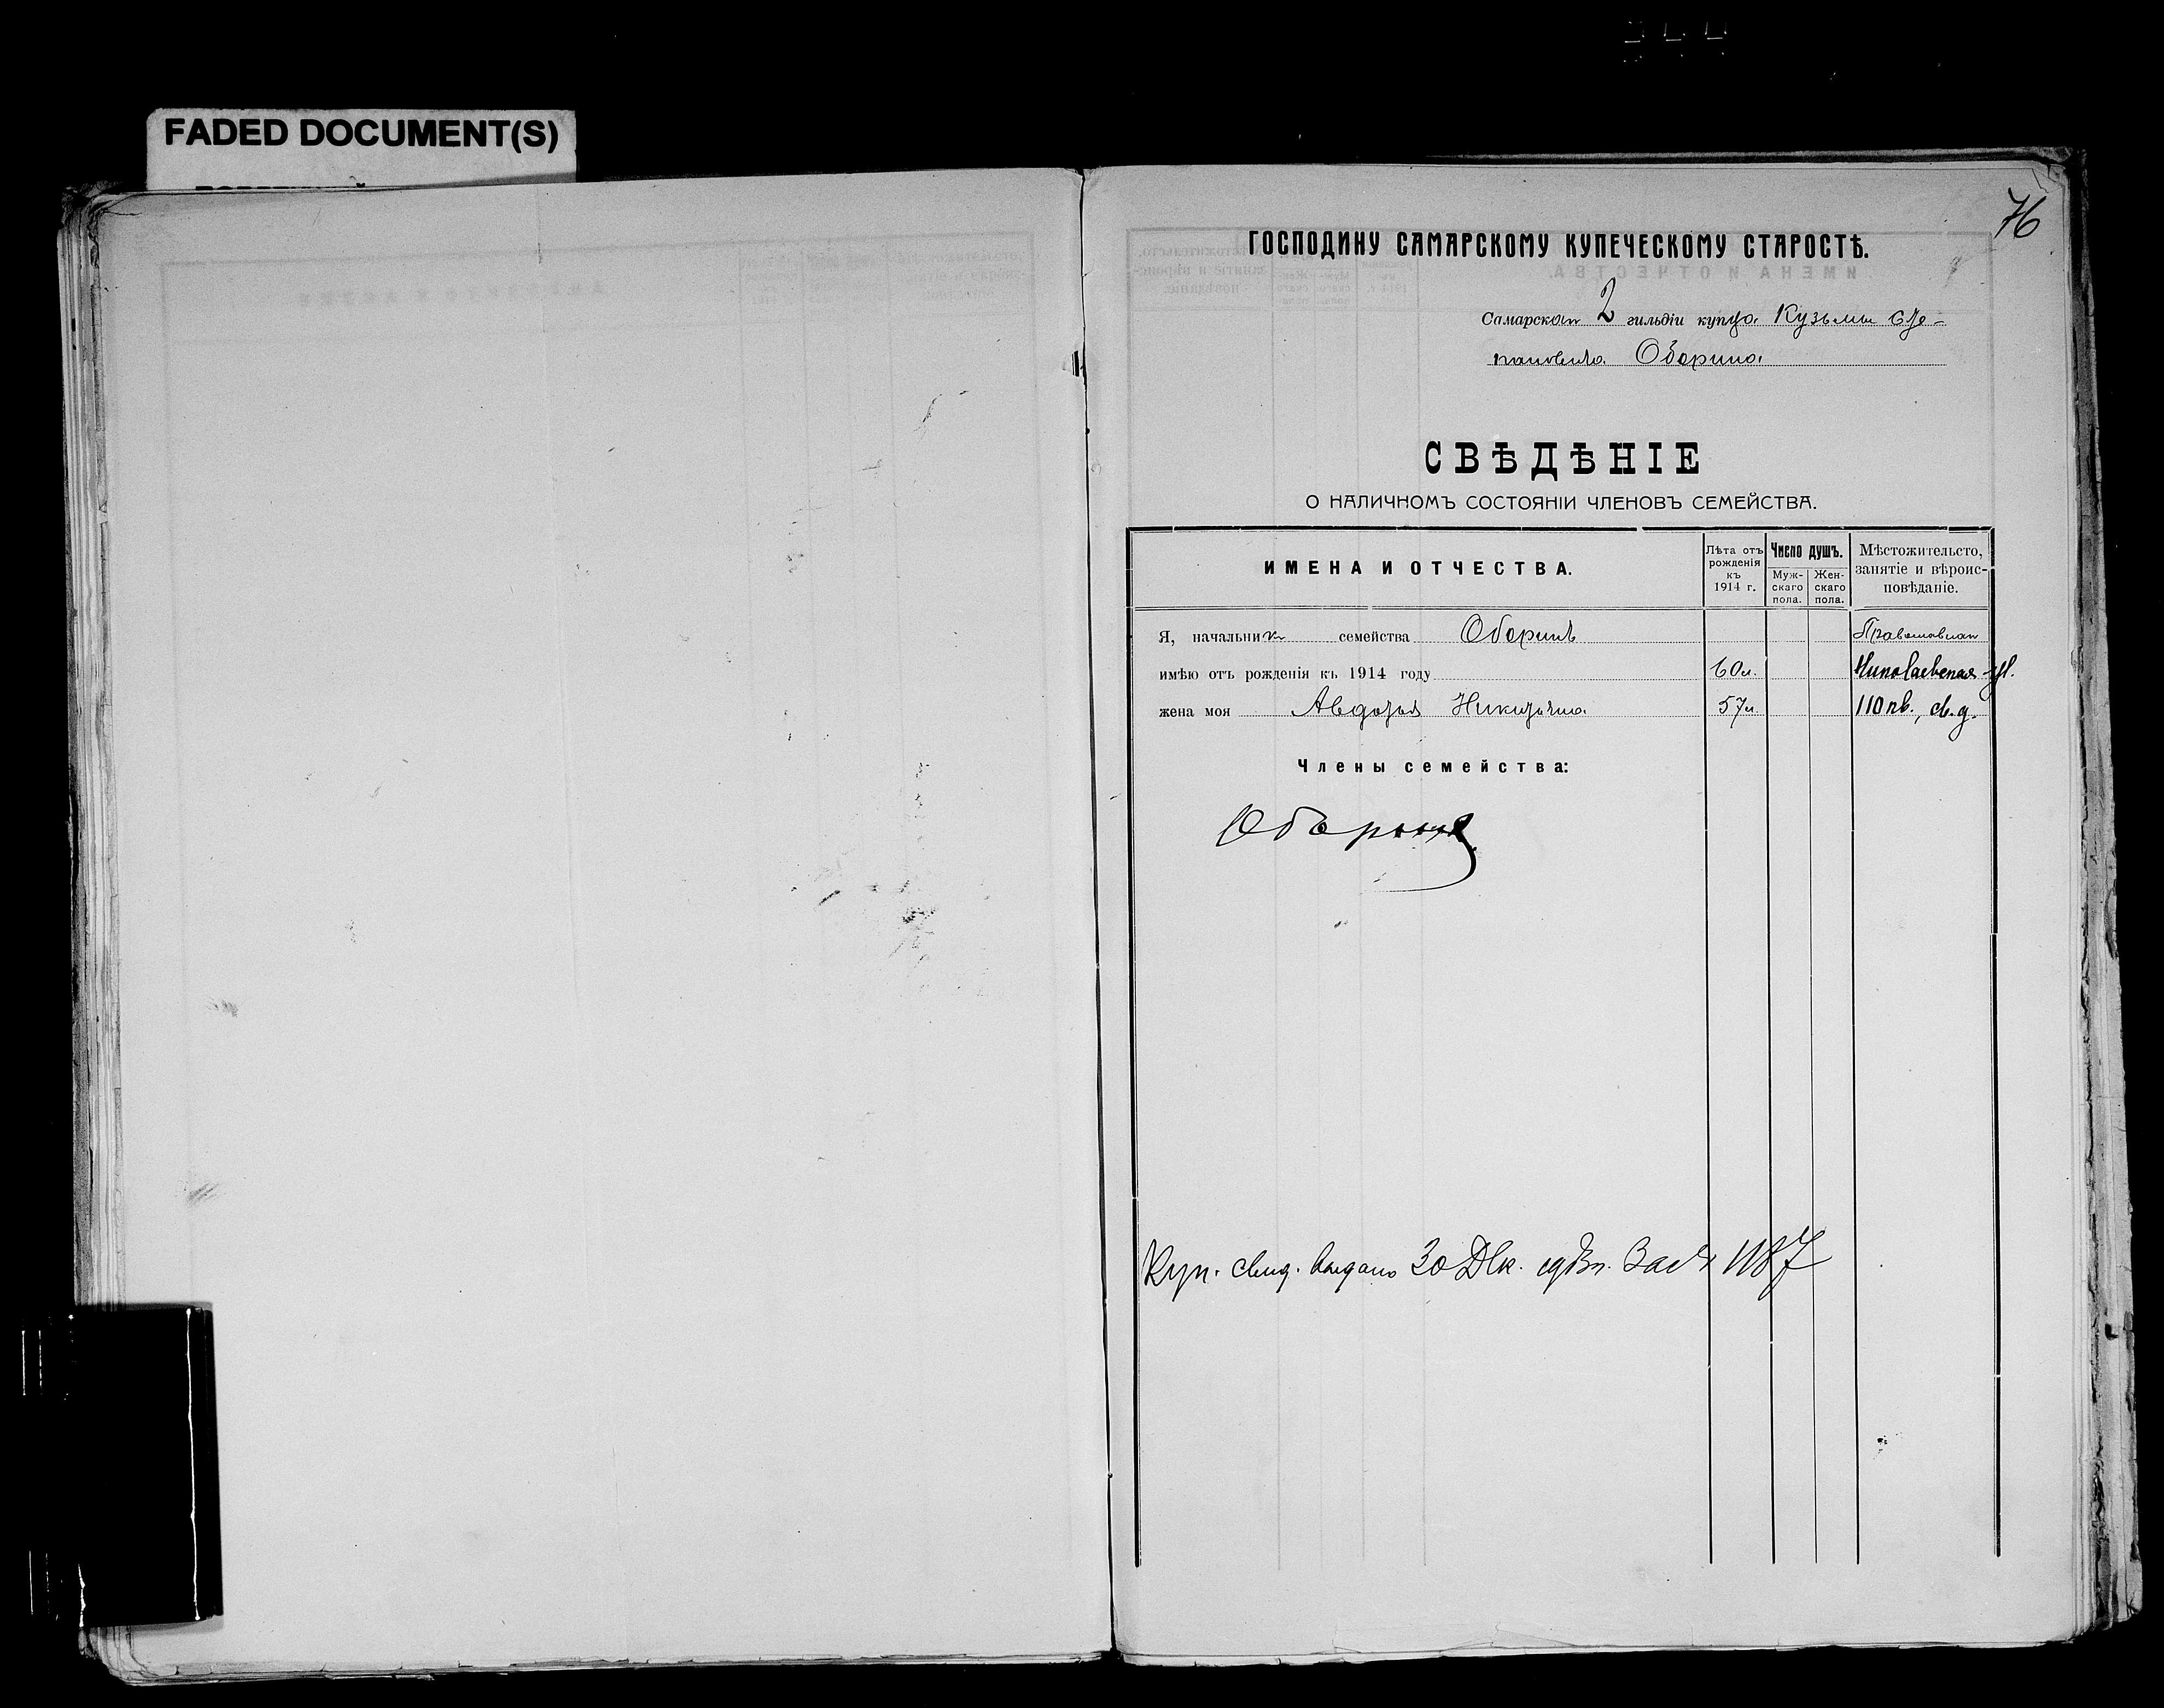 FADED DOCUMENT(S)
76
ГОСПОДИНУ САМАРСКОМУ КУПЕЧЕСКОМУ СТАРОСТѢ.
Самарскаго 2 гильдіи купца Кузьмы Сте-
пановича Оборина
СВѢДѢНІЕ
О НАЛИЧНОМЪ СОСТОЯНІИ ЧЛЕНОВЪ СЕМЕЙСТВА.
ИМЕНА И ОТЧЕСТВА.
Лѣта отъ рожденія къ 1914 г.
Число душъ.
Муж-скаго пола.
Жен-скаго пола.
Мѣстожительсто, занятіе и вѣроис-повѣданіе.
Я, начальникъ семейства Оборинъ Православнаго
имѣю отъ рожденія къ 1914 году 60 л. Николаевская ул.
жена моя Авдотья Никитична 57 л. 110 кв., св. д.
Члены семейства:
Оборинъ
Куп. свид. выдано 30 Дек. за № 1187